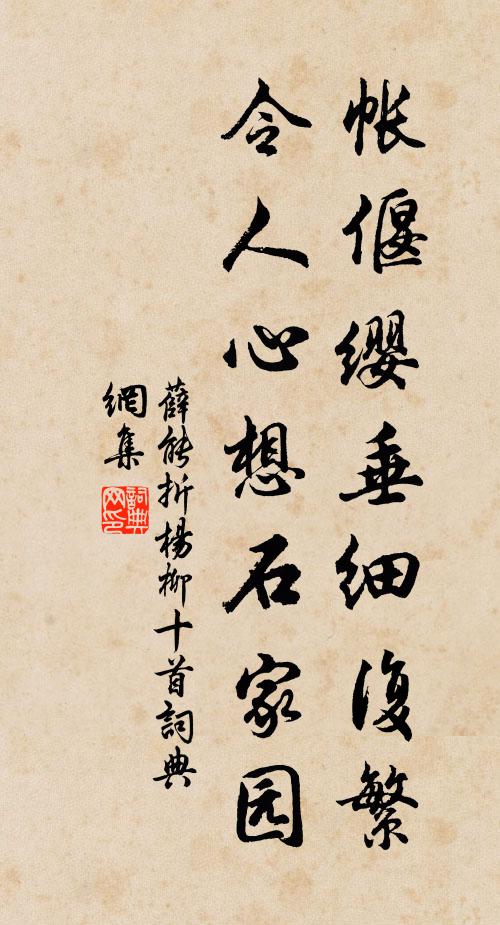 帐偃缨垂细復繁
令人心想石家园
薛能折楊柳十首詞典
網集
詞典
网印